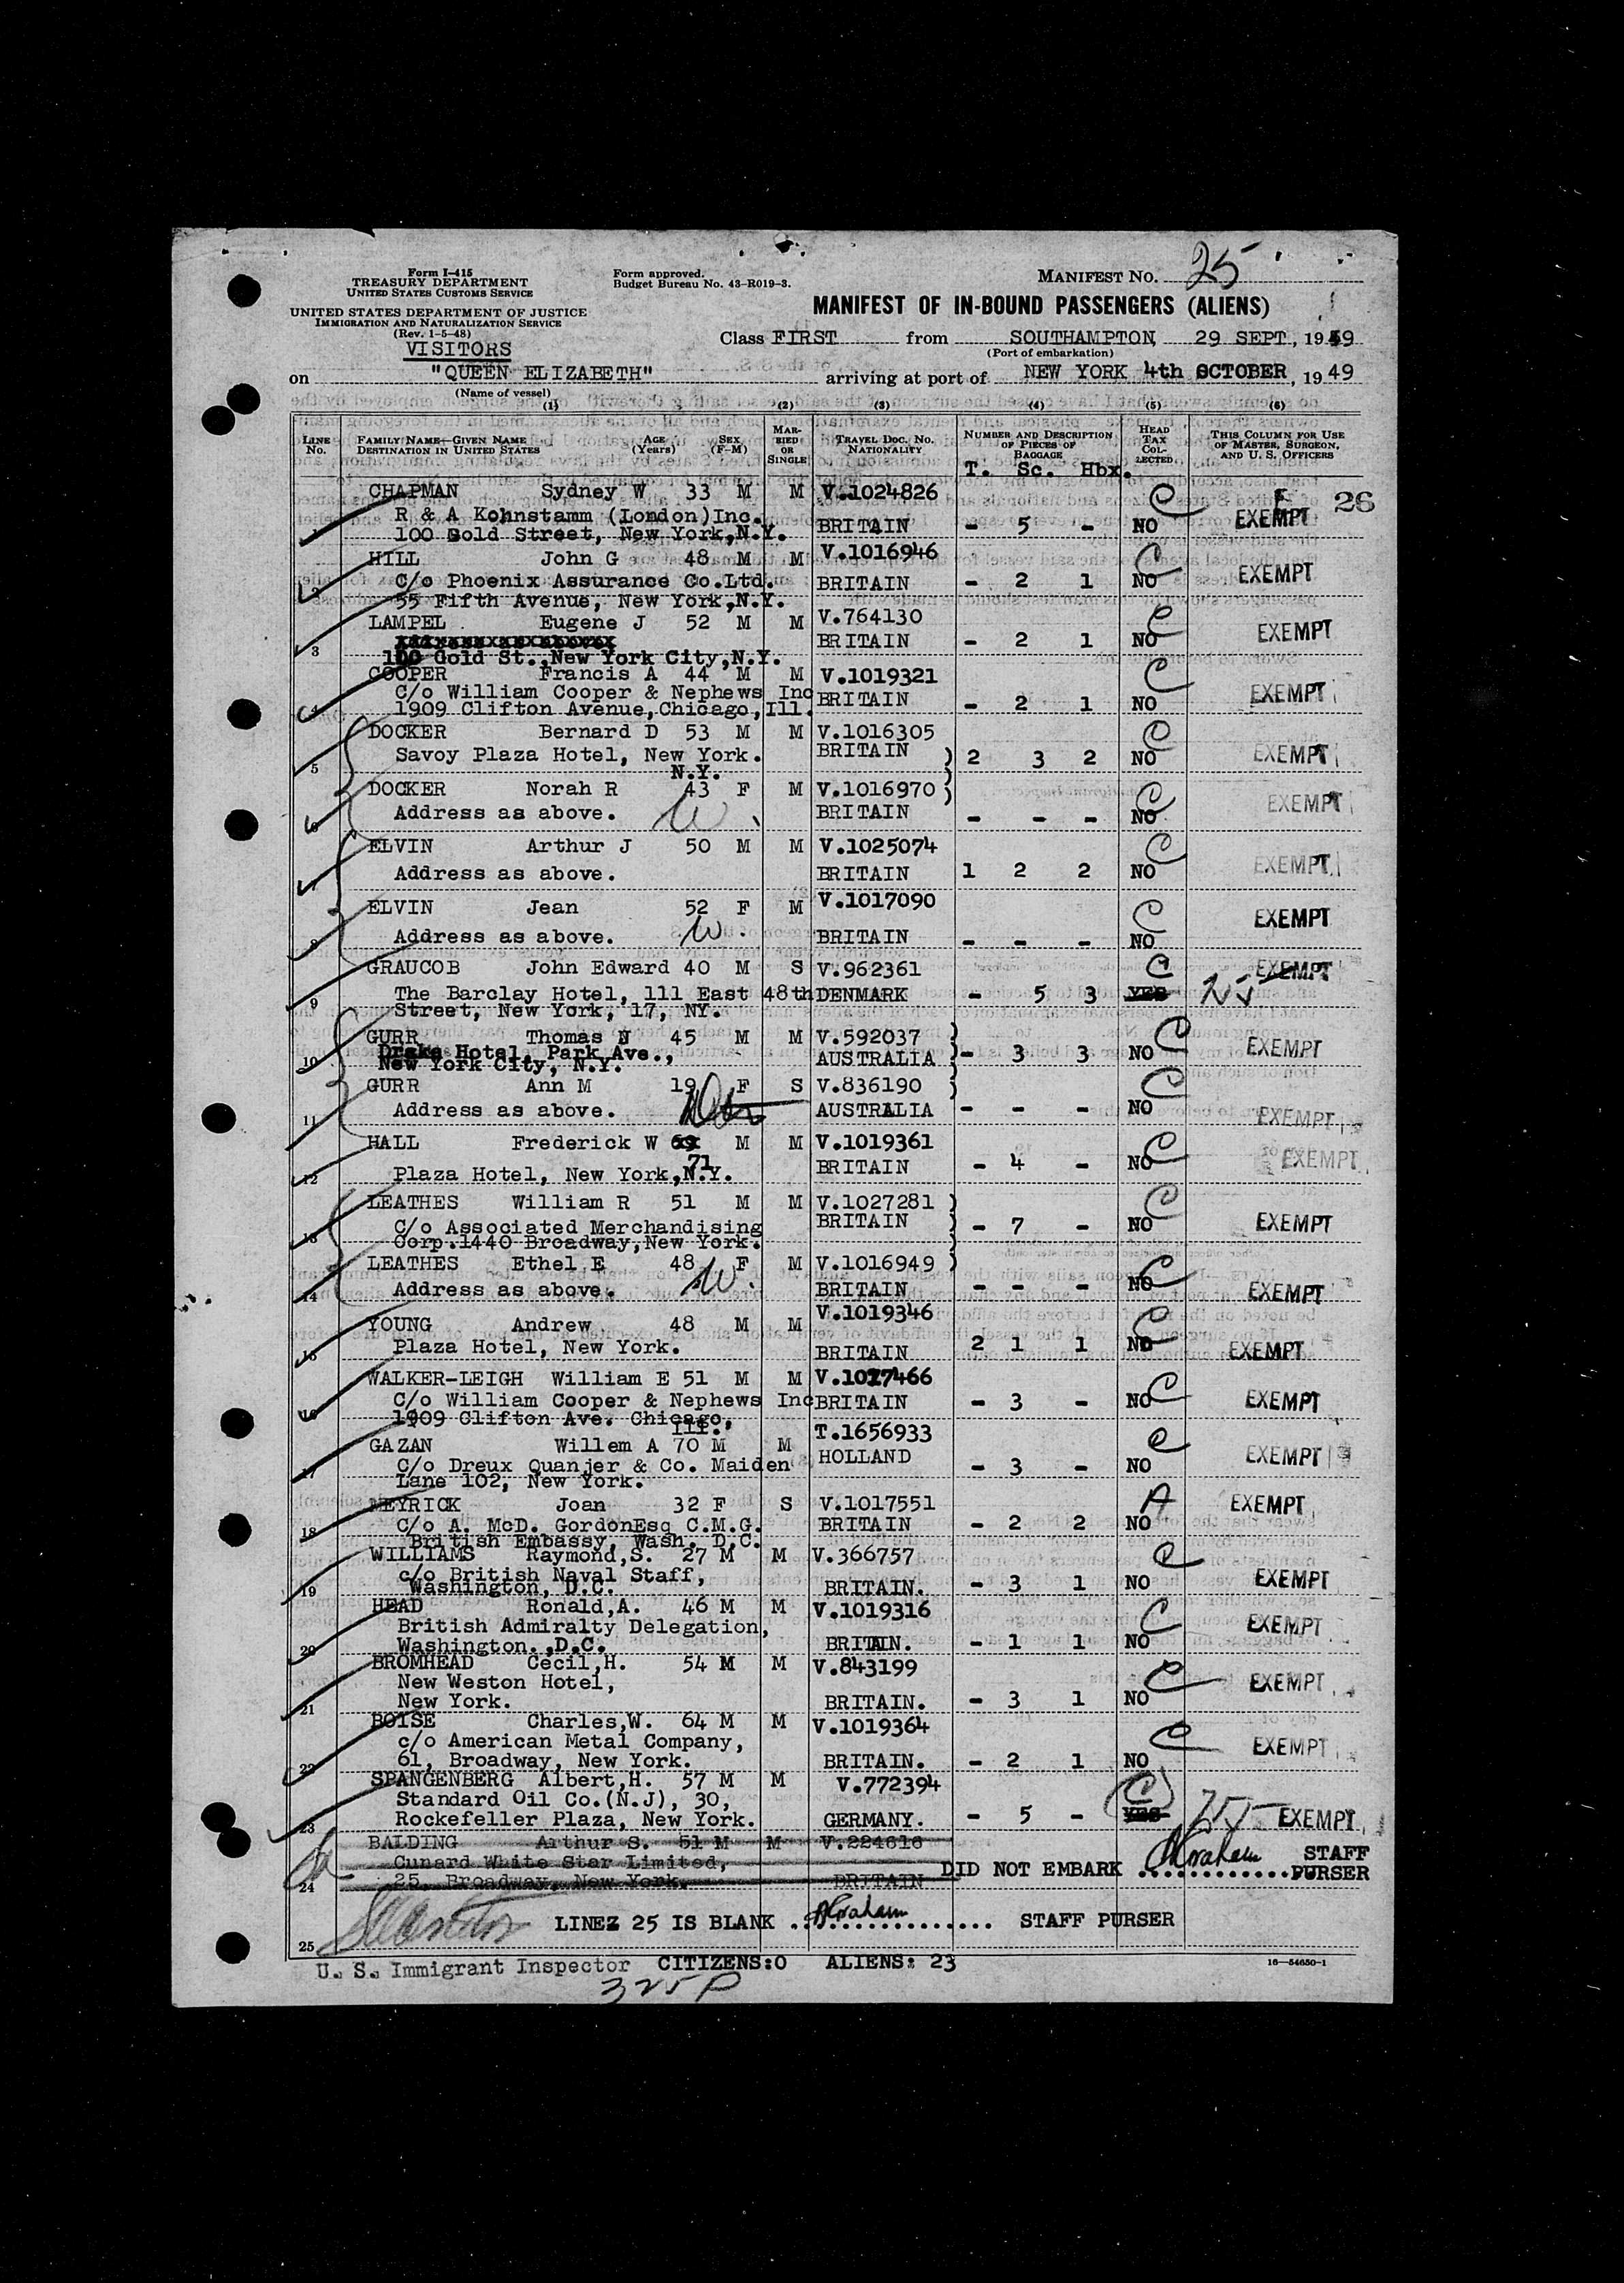 Form I-415
TREASURY DEPARTMENT
UNITED STATES CUSTOMS SERVICE
Form approved.
Budget Bureau No. 43-R019-3.
MANIFEST NO. 25
UNITED STATES DEPARTMENT OF JUSTICE
IMMIGRATION AND NATURALIZATION SERVICE
(Rev. 1-5-48)
VISITORS
MANIFEST OF IN-BOUND PASSENGERS (ALIENS)
Class FIRST from SOUTHAMPTON, 29 SEPT, 1949
(Port of embarkation)
on "QUEEN ELIZABETH" arriving at port of NEW YORK 4th OCTOBER, 1949
(Name of vessel)
(1) (2) (3) (4) (5) (6)
LINE No. FAMILY NAME—GIVEN NAME DESTINATION IN UNITED STATES AGE (Years) SEX (F-M) MARRIED OR SINGLE TRAVEL DOC. NO. NATIONALITY NUMBER AND DESCRIPTION OF PIECES OF BAGGAGE HEAD TAX COLLECTED THIS COLUMN FOR USE OF MASTER, SURGEON, AND U. S. OFFICERS
T. Sc. Hbx.
CHAPMAN Sydney W 33 M M V.1024826 C EXEMPT 26
R & A Kohnstamm (London)Inc. BRITAIN - 5 - NO
100 Gold Street, New York,N.Y.
HILL John G 48 M M V.1016946 C EXEMPT
2 C/o Phoenix Assurance Co.Ltd. BRITAIN - 2 1 NO
55 Fifth Avenue, New York,N.Y.
LAMPEL Eugene J 52 M M V.764130 C EXEMPT
BRITAIN - 2 1 NO
3 100 Gold St.,New York City,N.Y.
COOPER Francis A 44 M M V.1019321 C EXEMPT
C/o William Cooper & Nephews Inc BRITAIN - 2 1 NO
4 1909 Clifton Avenue,Chicago,Ill.
DOCKER Bernard D 53 M M V.1016305 C EXEMPT
5 Savoy Plaza Hotel, New York. BRITAIN 2 3 2 NO
N.Y.
DOCKER Norah R 43 F M V.1016970 C EXEMPT
6 Address as above. W. BRITAIN - - - NO
ELVIN Arthur J 50 M M V.1025074 C EXEMPT
7 Address as above. BRITAIN 1 2 2 NO
ELVIN Jean 52 F M V.1017090 C EXEMPT
8 Address as above. W. BRITAIN - - - NO
GRAUCOB John Edward 40 M S V.962361 C EXEMPT
9 The Barclay Hotel, 111 East 48th DENMARK - 5 3 YES
Street, New York, 17, NY.
GURR Thomas N 45 M M V.592037 C EXEMPT
10 Drake Hotel, Park Ave., AUSTRALIA - 3 3 NO
New York City, N.Y.
GURR Ann M 19 F S V.836190 C
11 Address as above. AUSTRALIA - - - NO EXEMPT
HALL Frederick W 69 M M V.1019361 C EXEMPT
71
12 Plaza Hotel, New York,N.Y. BRITAIN - 4 - NO
LEATHES William R 51 M M V.1027281 C EXEMPT
13 C/o Associated Merchandising BRITAIN - 7 - NO
Corp.1440 Broadway,New York.
LEATHES Ethel E 48 F M V.1016949 C EXEMPT
14 Address as above. W. BRITAIN - - - NO
YOUNG Andrew 48 M M V.1019346 C EXEMPT
15 Plaza Hotel, New York. BRITAIN 2 1 1 NO
WALKER-LEIGH William E 51 M M V.1027466 C EXEMPT
16 C/o William Cooper & Nephews Inc BRITAIN - 3 - NO
1909 Clifton Ave. Chicago,
Ill.
GAZAN Willem A 70 M M T.1656933 C EXEMPT
17 C/o Dreux Quanjer & Co. Maiden HOLLAND - 3 - NO
Lane 102, New York.
MEYRICK Joan 32 F S V.1017551 A EXEMPT
18 C/o A. McD. GordonEsq C.M.G. BRITAIN - 2 2 NO
British Embassy, Wash. D.C.
WILLIAMS Raymond,S. 27 M M V.366757 C EXEMPT
19 c/o British Naval Staff, BRITAIN. - 3 1 NO
Washington, D.C.
HEAD Ronald,A. 46 M M V.1019316 C EXEMPT
20 British Admiralty Delegation, BRITAIN. - 1 1 NO
Washington.,D.C.
BROMHEAD Cecil,H. 54 M M V.843199 C EXEMPT
New Weston Hotel,
21 New York. BRITAIN. - 3 1 NO
BOISE Charles,W. 64 M M V.1019364 C EXEMPT
c/o American Metal Company,
22 61, Broadway, New York. BRITAIN. - 2 1 NO
SPANGENBERG Albert,H. 57 M M V.772394 C
Standard Oil Co.(N.J), 30,
23 Rockefeller Plaza, New York. GERMANY. - 5 - YES EXEMPT
BALDING Arthur S. 51 M M V.224616
Cunard White Star Limited, DID NOT EMBARK STAFF PURSER
24 25, Broadway, New York. BRITAIN
25 LINE 25 IS BLANK STAFF PURSER
U. S. Immigrant Inspector CITIZENS:0 ALIENS: 23
16—54650-1
325P